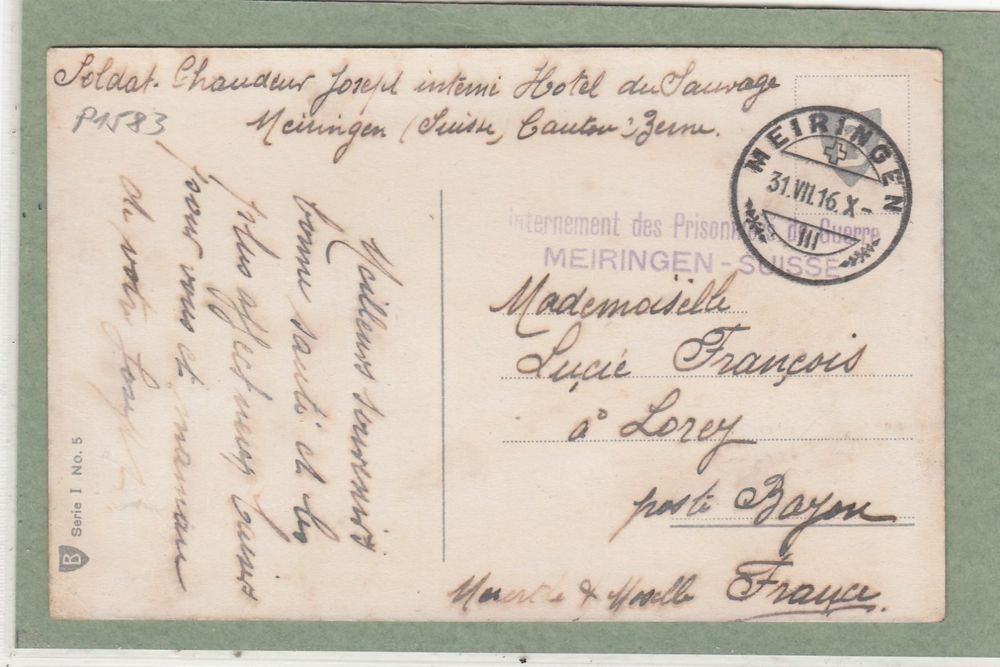 Soldat Chaudeur Joseph interné Hotel du Sauvage
Meiringen (Suisse) Canton : Berne.
P1583
MEIRINGEN
31.VII.16.X-
III
Internement des Prisonniers de Guerre
MEIRINGEN - SUISSE
Mademoiselle
Lucie François
à Lorey
poste Bayon
Meurthe & Moselle France.
Meilleurs souvenirs
bonne santé et les
plus affectueux baisers
pour vous et maman
de votre Joseph
B Serie I No. 5